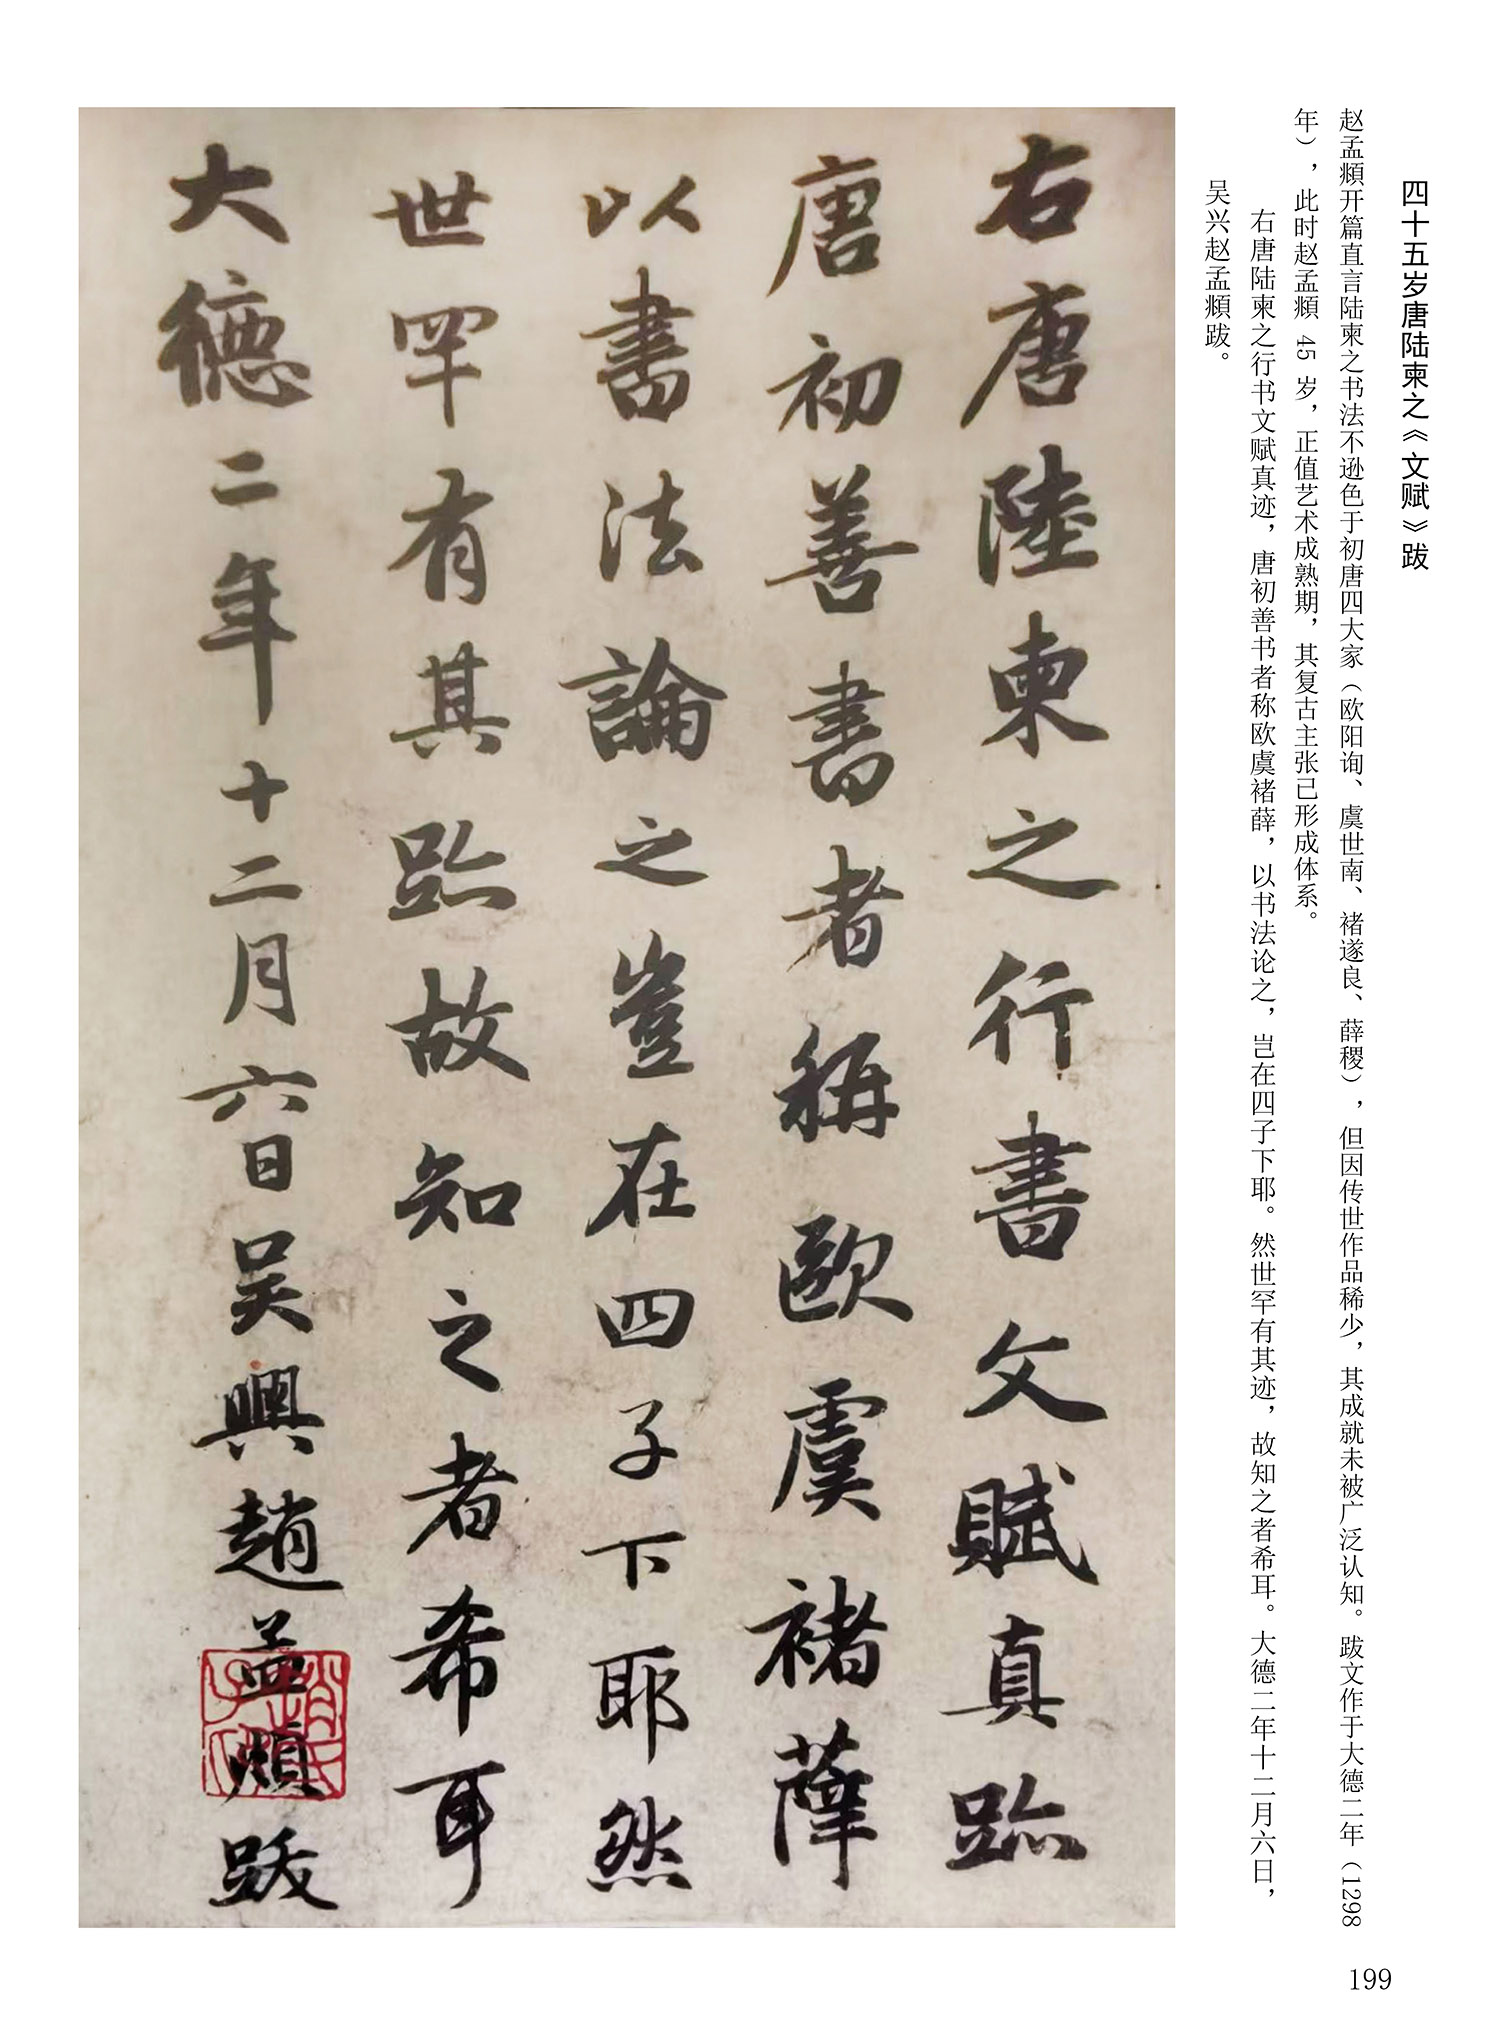 四十五岁唐陆柬之《文赋》跋
赵孟頫开篇直言陆柬之书法不逊色于初唐四大家（欧阳询、虞世南、褚遂良、薛稷），但因传世作品稀少，其成就未被广泛认知。跋文作于大德二年（1298
年），此时赵孟頫 45 岁，正值艺术成熟期，其复古主张已形成体系。
右唐陆柬之行书文赋真迹，唐初善书者称欧虞褚薛，以书法论之，岂在四子下耶。然世罕有其迹，故知之者希耳。大德二年十二月六日，
吴兴赵孟頫跋。
右唐陸柬之行書文賦真跡
唐初善書者稱歐虞褚薛
以書法論之豈在四子下耶然
世罕有其跡故知之者希耳
大德二年十二月六日吴興趙孟頫跋
趙氏子昂
199